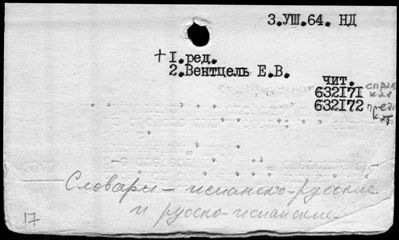 3.УШ.64. НД
+ 1.ред.
2.Вентцель Е.В.
чит.
632171 справ
632172
Словари – испанско-русские
и русско-испанские
17